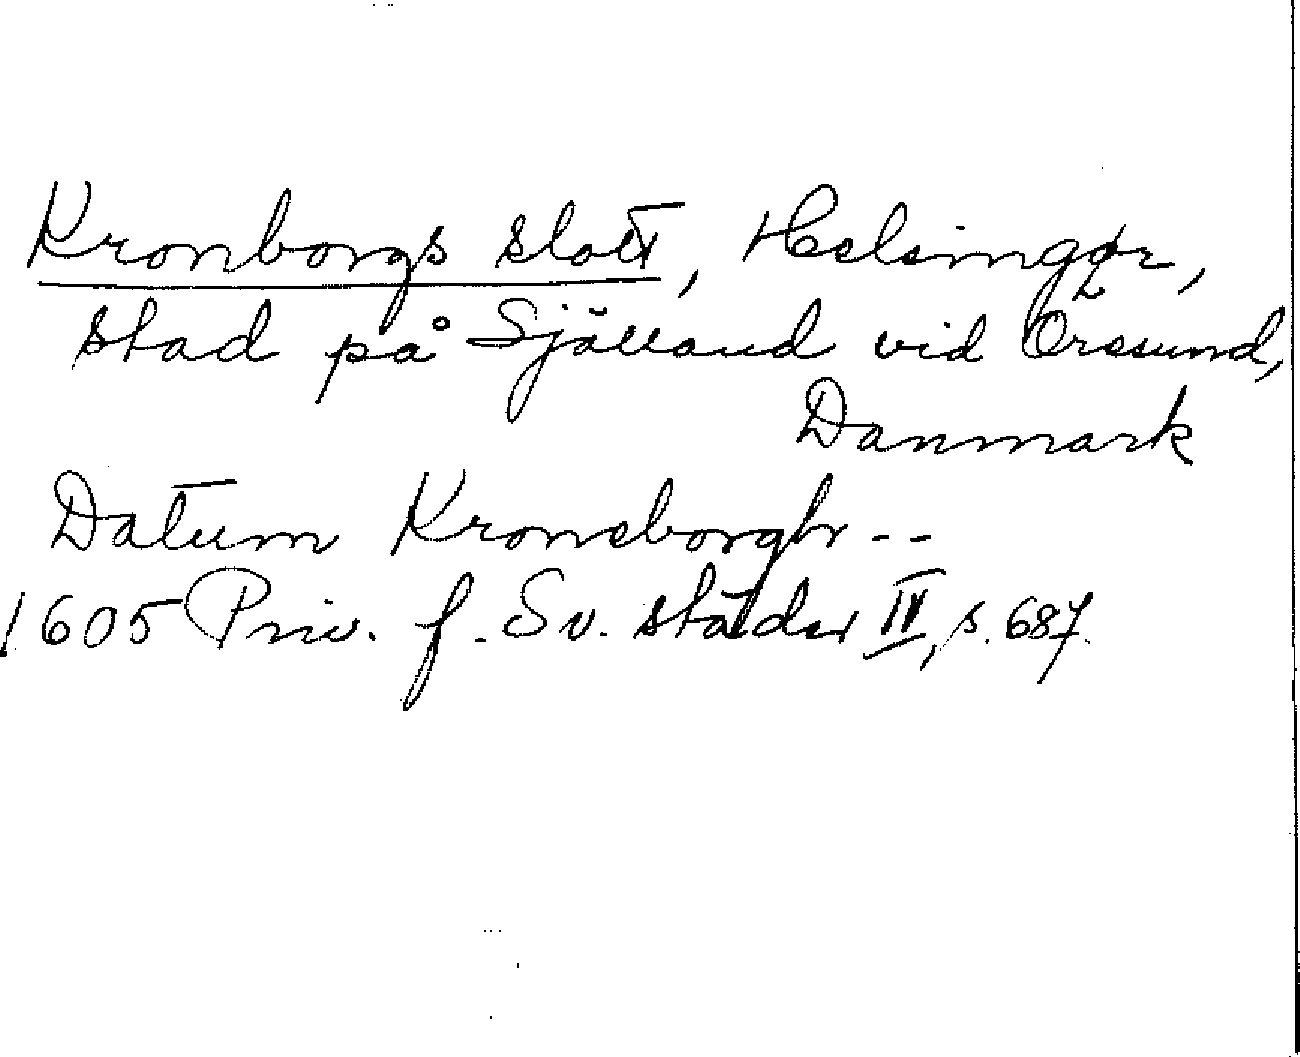 Kronborgs slott, Helsingør,
stad på Själland vid Öresund,
Danmark
Datum Kronsborgh --
1605 Priv. f. Sv. städer IV, s. 687.